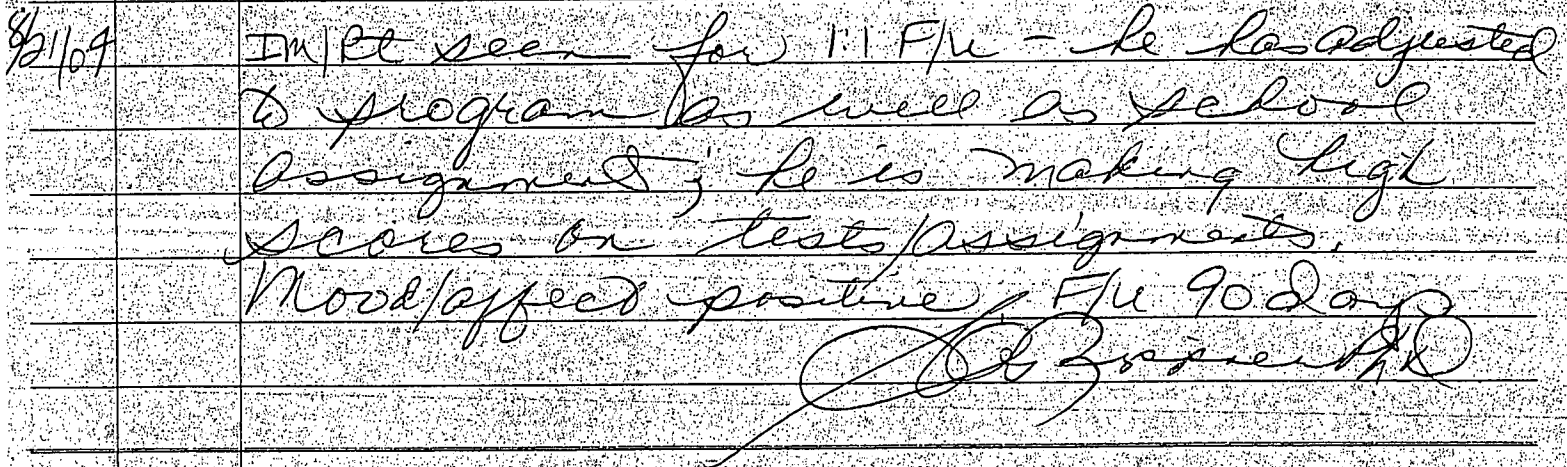 8/21/04 IM/Pt seen for 1:1 F/u - he has adjusted
to program as well as school
assignment; he is making high
scores on tests/assignments.
Mood/affect positive, F/u 90 days
PhD